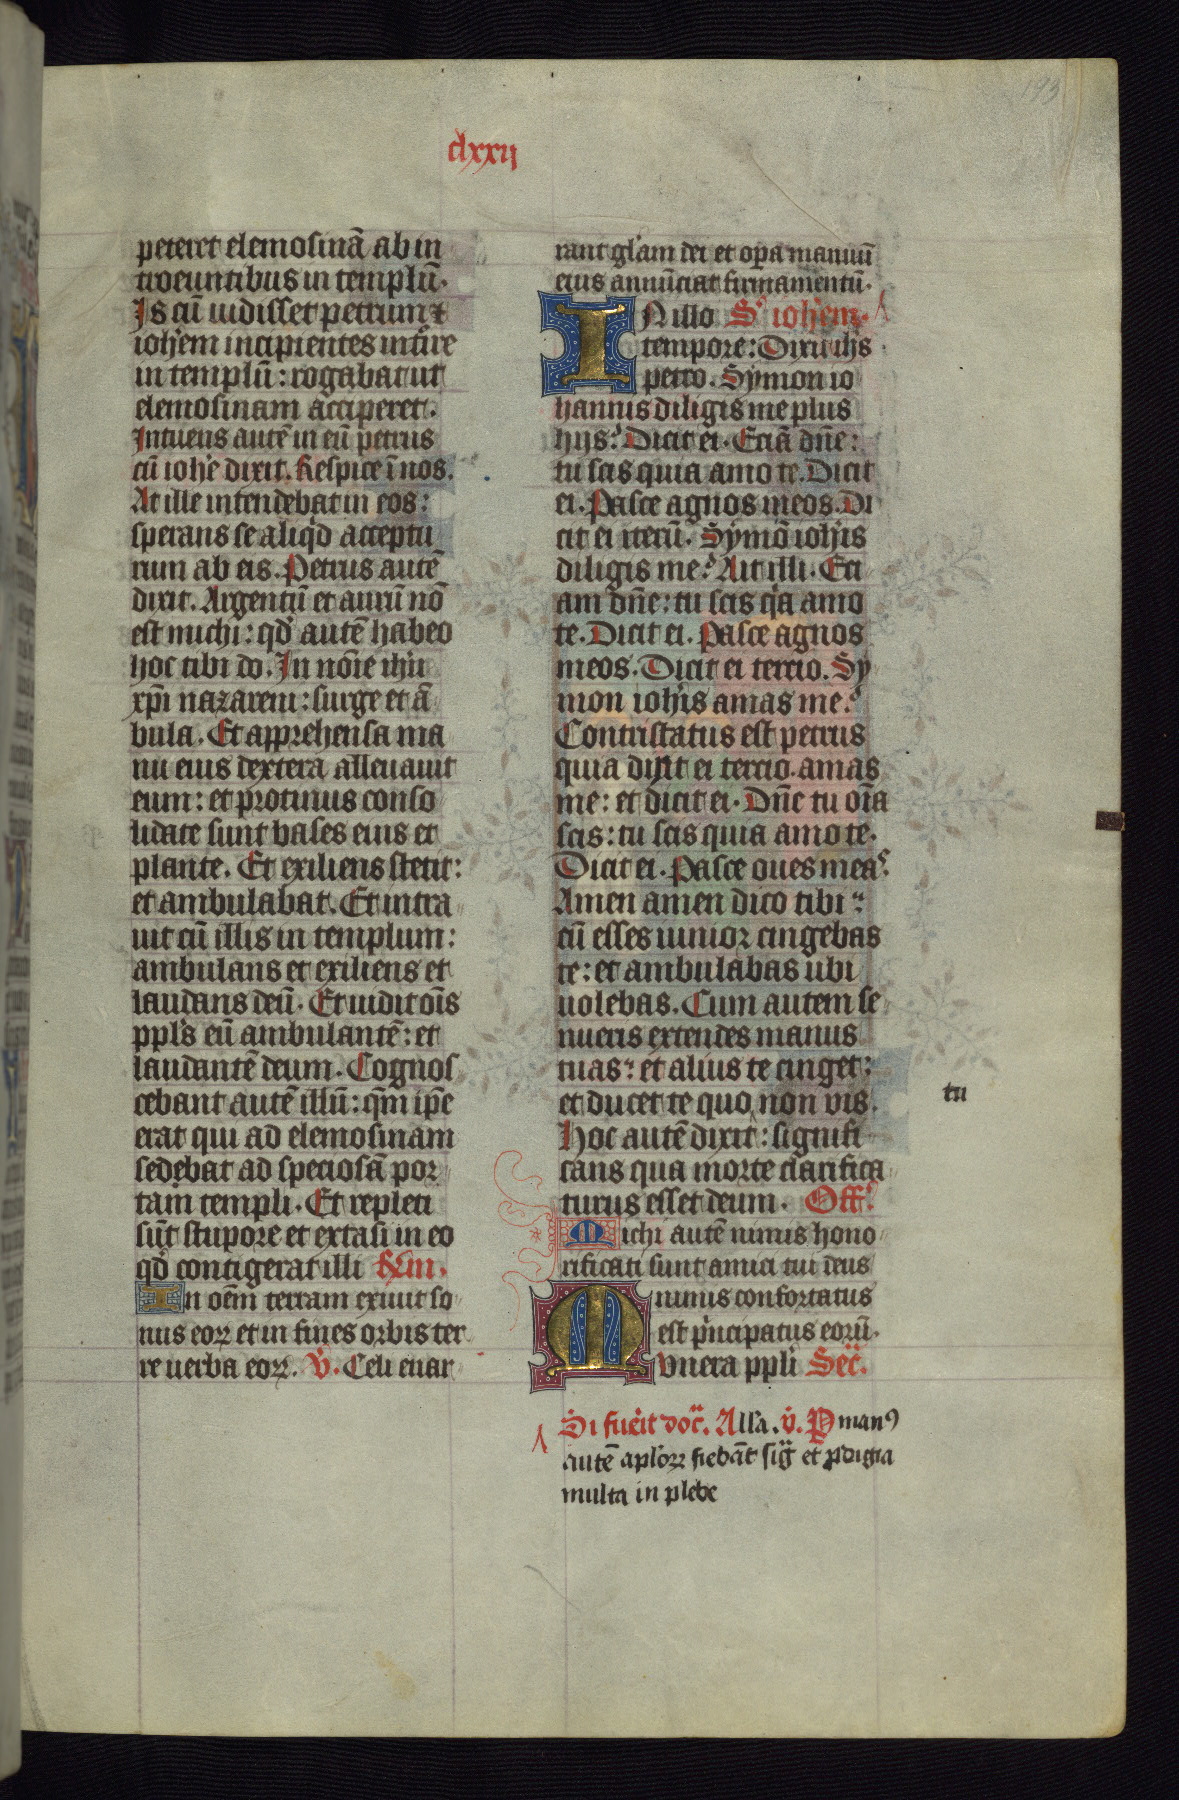 193
clxxij
peteret elemosinā ab in
troeuntibus in templū.
Is cū uidisset petrum et
ioh'em incipientes intᷓire
in templū: rogabat ut
elemosinam acciperet.
Intuens autē in eū petrus
cū ioh'e dixit. Respice ī nos.
At ille intendebat in eos:
sperans se aliqͥd acceptu
rum ab eis. Petrus autē
dixit. Argentū et aurū nō
est michi: qd' autē habeo
hoc tibi do. In nōie ihū
xp̄i nazareni: surge et ā
bula. Et apprehensa ma
nu eius dextera alleuauit
eum: et protinus conso
lidate sunt bases eius et
plante. Et exiliens stetit:
et ambulabat. Et intra
uit cū illis in templum:
ambulans et exiliens et
laudans deū. Et uidit oīs
ppl's eū ambulantē: et
laudantē deum. Cognos
cebant autē illū: qm̄ ip̄e
erat qui ad elemosinam
sedebat ad speciosā por
tam templi. Et repleti
sūt stupore et extasi in eo
qd' contigerat illi R̄m.
In oēm terram exiuit so
nus eoꝝ et in fines orbis ter
re uerba eoꝝ. V̇. Celi enar
rant gl'am dei et op̄a manuū
eius annūciat firmamentū.
IN illo Sͨ ioh'em.
tempore: Dixit ihs
petro. Symon io
hannis diligis me plus
hijs? Dicit ei. Eciā dn̄e:
tu scis quia amo te. Dicit
ei. Pasce agnos meos. Di
cit ei iterū. Symō ioh'is
diligis me? Ait illi. Eci
am dn̄e: tu scis qͣa amo
te. Dicit ei. Pasce agnos
meos. Dicit ei tercio. Sy
mon ioh'is amas me?
Contristatus est petrus
quia dixit ei tercio. amas
me: et dicit ei. Dn̄e tu oīa
scis: tu scis quia amo te.
Dicit ei. Pasce oues meas.
Amen amen dico tibi:
cū esses iunior cingebas
te: et ambulabas ubi
uolebas. Cum autem se
nueris extendes manus
tuas: et alius te cinget:
et ducet te quo non vis.
tu
Hoc autē dixit: signifi
cans qua morte clarifica
turus esset deum. Off'.
Michi autē nimis hono
rificati sunt amici tui deus
nimis confortatus
est pͥncipatus eorū.
Munera ppl'i Sec̄.
Si fuerit doc̄. Alla. V̇. P man9
autē apl'oꝝ fiebāt sigᷓ et ꝓdigia
multa in plebe